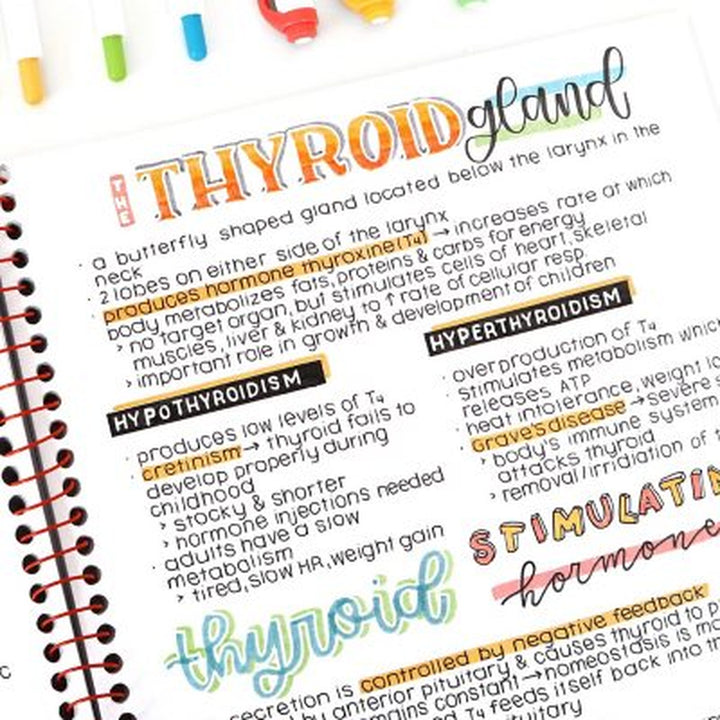 THE THYROID gland
· a butterfly shaped gland located below the larynx in the
neck
· 2 lobes on either side of the larynx
· produces hormone thyroxine (T4) → increases rate at which
body metabolizes fats, proteins & carbs for energy
> no target organ, but stimulates cells of heart, skeletal
muscles, liver & kidney to ↑ rate of cellular resp.
> important role in growth & development of children
HYPOTHYROIDISM
· produces low levels of T4
· cretinism → thyroid fails to
develop properly during
childhood
> stocky & shorter
> hormone injections needed
· adults have a slow
metabolism
> tired, slow HR, weight gain
HYPERTHYROIDISM
· overproduction of T4
· stimulates metabolism which
releases ATP
· heat intolerance, weight
· Grave's disease → severe
> body's immune system
attacks thyroid
> removal/irridiation of
thyroid
STIMULATIN
hormone
secretion is controlled by negative feedback
by anterior pituitary & causes thyroid to
constant → homeostasis is
T4 feeds itself back into
pituitary